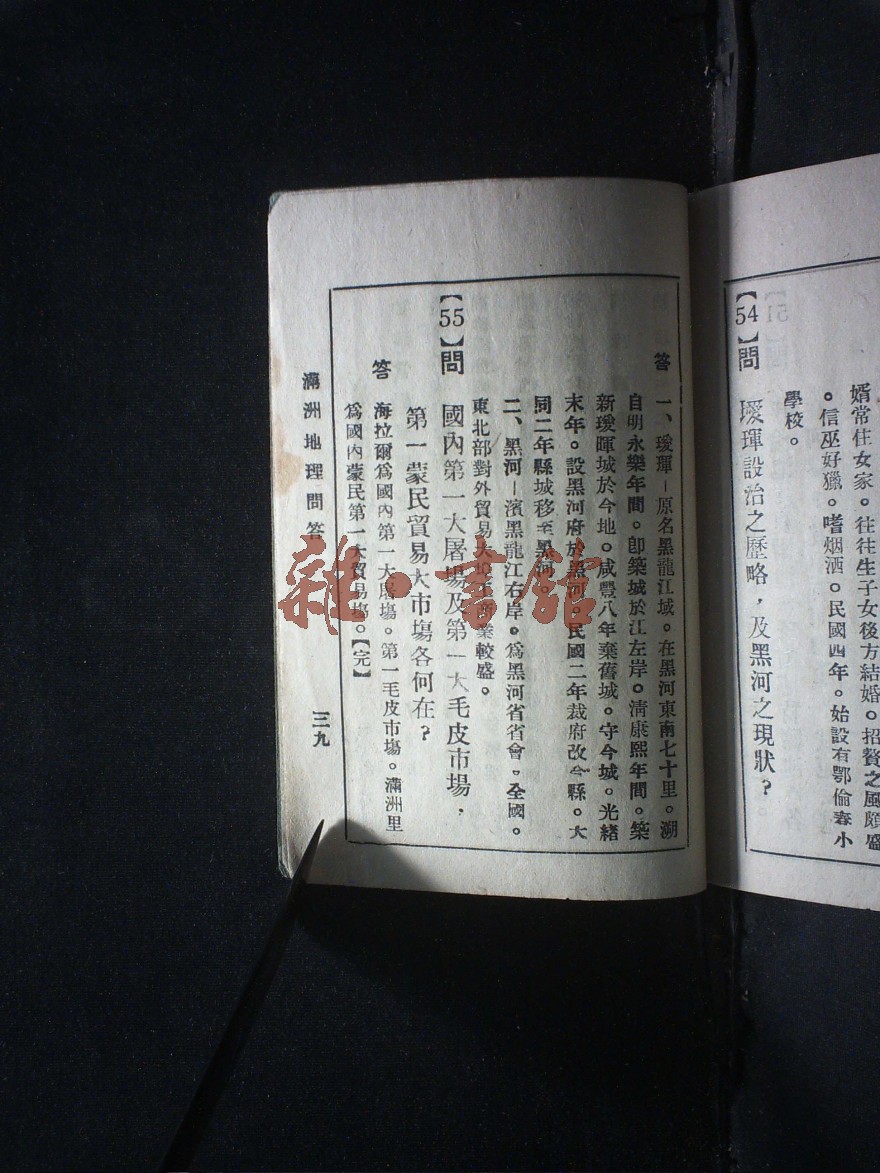 婿常住女家。往往生子女後方結婚。招贅之風頗盛
。信巫好獵。嗜烟酒。民國四年。始設有鄂倫春小
學校。
【54】問 璦琿設治之歷略，及黑河之現狀？
答 一、璦琿－原名黑龍江城。在黑河東南七十里。溯
自明永樂年間。卽築城於江左岸。淸康熙年間。築
新璦琿城於今地。咸豐八年棄舊城。守今城。光緒
末年。設黑河府於黑河。民國二年裁府改今縣。大
同二年縣城移至黑河。
二、黑河－濱黑龍江右岸。爲黑河省省會。全國。
東北部對外貿易大埠工商業較盛。
【55】問 國內第一大屠場及第一大毛皮市場，
第一蒙民貿易大市場各何在？
答 海拉爾爲國內第一大屠塲。第一毛皮市塲。滿洲里
爲國內蒙民第一大貿易塲。【完】
滿洲地理問答 三九
雜·書館